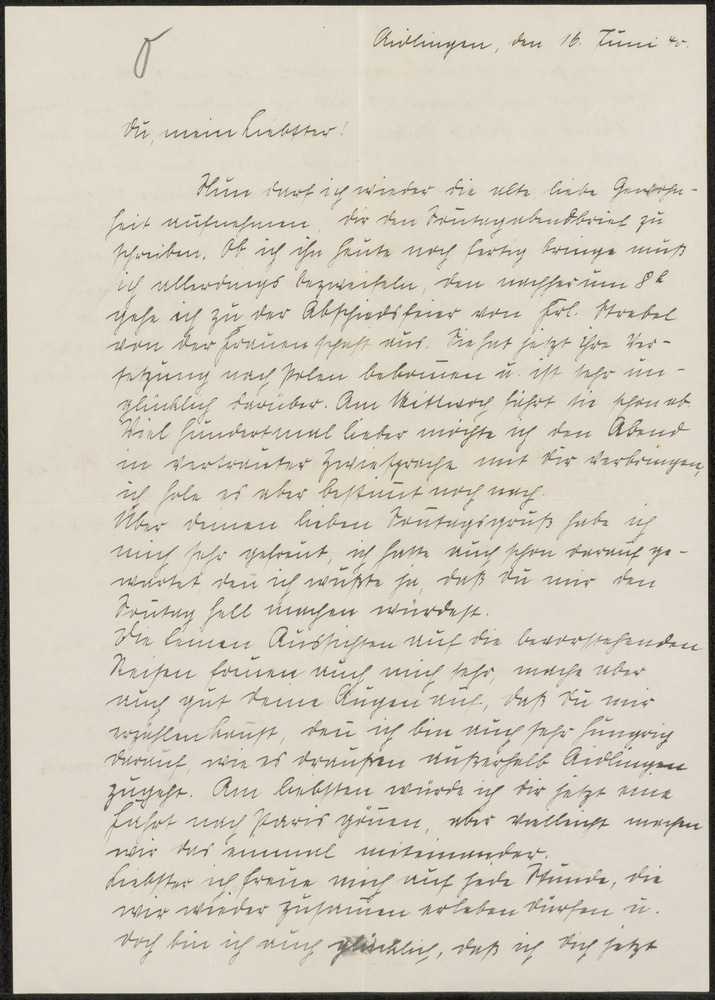 Aidlingen, den 16. Juni 40.
Du, mein Liebster!
Nun darf ich wieder die alte liebe Gewohn-
heit aufnehmen, dir den Sonntagabendbrief zu
schreiben. Ob ich ihn heute noch fertig bringe muß
ich allerdings bezweifeln, den nachher um 8 h
gehe ich zu der Abschiedsfeier von Frl. Strebel
von der Frauenschaft aus. Sie hat jetzt ihre Ver-
setzung nach Polen bekommen u. ist sehr un-
glücklich darüber. Am Mittwoch fährt sie schon ab.
Viel hundertmal lieber möchte ich den Abend
in vertrauter Zwiesprache mit dir verbringen,
ich hole es aber bestimmt noch nach.
Über deinen lieben Sonntagsgruß habe ich
mich sehr gefreut, ich hatte auch schon darauf ge-
wartet den ich wußte ja, daß du mir den
Sonntag hell machen würdest.
Die feinen Aussichten auf die bevorstehenden
Reisen freuen auch mich sehr, mache aber
auch gut deine Augen auf, daß du mir
erzählen kannst, den ich bin auch sehr hungrig
darauf, wie es draußen außerhalb Aidlingen
zugeht. Am liebsten würde ich dir jetzt eine
Fahrt nach Paris gönnen, aber vielleicht machen
wir das einmal miteinander.
Liebster ich freue mich auf jede Stunde, die
wir wieder zusammen erleben dürfen u.
doch bin ich auch glücklich, daß ich dich jetzt